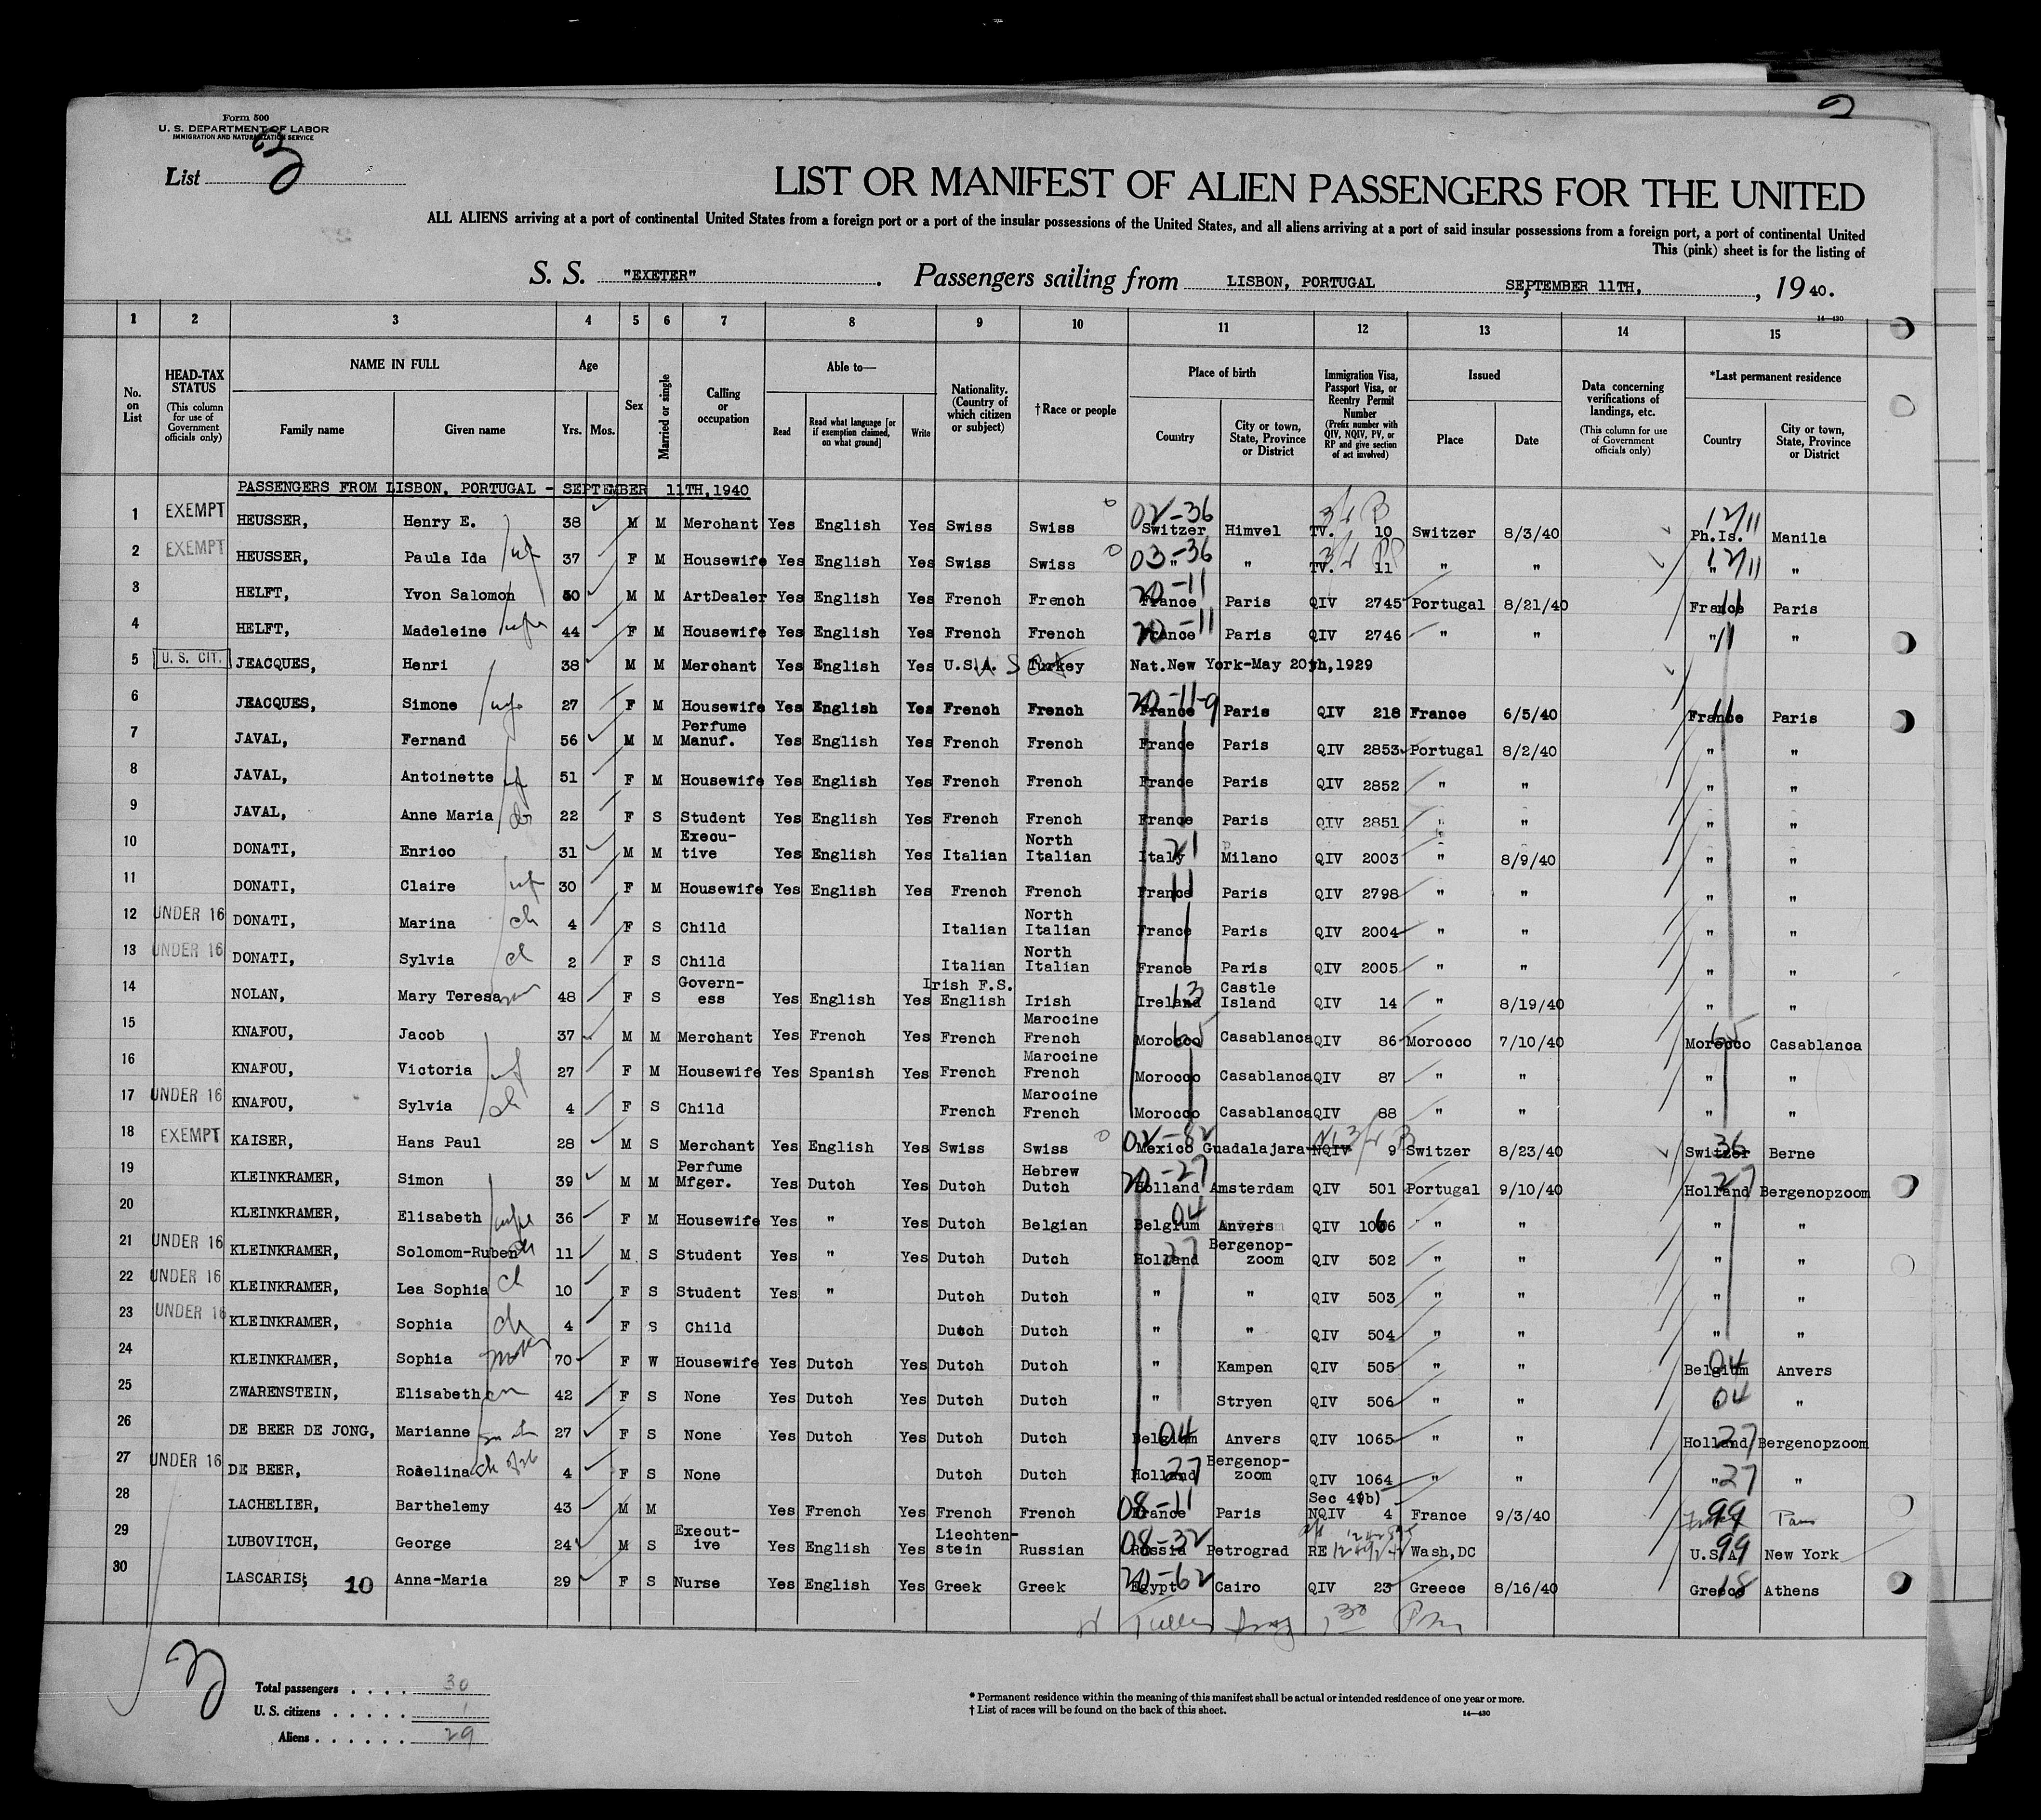 Form 500
U. S. DEPARTMENT OF LABOR
IMMIGRATION AND NATURALIZATION SERVICE
2
List 3
LIST OR MANIFEST OF ALIEN PASSENGERS FOR THE UNITED
ALL ALIENS arriving at a port of continental United States from a foreign port or a port of the insular possessions of the United States, and all aliens arriving at a port of said insular possessions from a foreign port, a port of continental United
This (pink) sheet is for the listing of
S. S. "EXETER". Passengers sailing from LISBON, PORTUGAL SEPTEMBER 11TH, , 19 40.
14—430
1 2 3 4 5 6 7 8 9 10 11 12 13 14 15
No. on List
HEAD-TAX STATUS (This column for use of Government officials only)
NAME IN FULL
Family name Given name
Age
Yrs. Mos.
Sex
Married or single
Calling or occupation
Able to—
Read
Read what language [or if exemption claimed, on what ground]
Write
Nationality. (Country of which citizen or subject)
† Race or people
Place of birth
Country
City or town, State, Province or District
Immigration Visa, Passport Visa, or Reentry Permit Number (Prefix number with QIV, NQIV, PV, or RP and give section of act involved)
Issued
Place Date
Data concerning verifications of landings, etc. (This column for use of Government officials only)
*Last permanent residence
Country
City or town, State, Province or District
PASSENGERS FROM LISBON, PORTUGAL - SEPTEMBER 11TH,1940
1 EXEMPT HEUSSER, Henry E. 38 M M Merchant Yes English Yes Swiss Swiss 02-36 Switzer Himvel TV. 10 Switzer 8/3/40 12/11 Ph.Is. Manila
2 EXEMPT HEUSSER, Paula Ida wf 37 F M Housewife Yes English Yes Swiss Swiss 03-36 " " TV. 11 " " 12/11 " "
3 HELFT, Yvon Salomon 50 M M ArtDealer Yes English Yes French French 20-11 France Paris QIV 2745 Portugal 8/21/40 France 11 Paris
4 HELFT, Madeleine wife 44 F M Housewife Yes English Yes French French 20-11 France Paris QIV 2746 " " " 11 "
5 U. S. CIT. JEACQUES, Henri 38 M M Merchant Yes English Yes U.S.A. U S Cit Turkey Nat.New York-May 20th,1929
6 JEACQUES, Simone wf 27 F M Housewife Yes English Yes French French 20-11-9 France Paris QIV 218 France 6/5/40 France 11 Paris
7 JAVAL, Fernand 56 M M Perfume Manuf. Yes English Yes French French France Paris QIV 2853 Portugal 8/2/40 " "
8 JAVAL, Antoinette wf 51 F M Housewife Yes English Yes French French France Paris QIV 2852 " " " "
9 JAVAL, Anne Maria 22 F S Student Yes English Yes French French France Paris QIV 2851 " " " "
10 DONATI, Enrico 31 M M Execu-tive Yes English Yes Italian North Italian Italy 21 Milano QIV 2003 " 8/9/40 " "
11 DONATI, Claire wf 30 F M Housewife Yes English Yes French French France 11 Paris QIV 2798 " " " "
12 UNDER 16 DONATI, Marina ch 4 F S Child Italian North Italian France Paris QIV 2004 " " " "
13 UNDER 16 DONATI, Sylvia ch 2 F S Child Italian North Italian France Paris QIV 2005 " " " "
14 NOLAN, Mary Teresa 48 F S Govern-ess Yes English Yes Irish F.S. English Irish Ireland 13 Castle Island QIV 14 " 8/19/40 " "
15 KNAFOU, Jacob 37 M M Merchant Yes French Yes French Marocine French Morocco 65 Casablanca QIV 86 Morocco 7/10/40 Morocco 65 Casablanca
16 KNAFOU, Victoria wf 27 F M Housewife Yes Spanish Yes French Marocine French Morocco Casablanca QIV 87 " " " "
17 UNDER 16 KNAFOU, Sylvia ch 4 F S Child French Marocine French Morocco Casablanca QIV 88 " " " "
18 EXEMPT KAISER, Hans Paul 28 M S Merchant Yes English Yes Swiss Swiss 02-82 Mexico Guadalajara NQIV 9 Switzer 8/23/40 Switzer 36 Berne
19 KLEINKRAMER, Simon 39 M M Perfume Mfger. Yes Dutch Yes Dutch Hebrew Dutch 20-27 Holland Amsterdam QIV 501 Portugal 9/10/40 Holland 27 Bergenopzoom
20 KLEINKRAMER, Elisabeth wife 36 F M Housewife Yes " Yes Dutch Belgian Belgium 04 Anvers QIV 1066 " " " "
21 UNDER 16 KLEINKRAMER, Solomom-Ruben ch 11 M S Student Yes " Yes Dutch Dutch Holland 27 Bergenop-zoom QIV 502 " " " "
22 UNDER 16 KLEINKRAMER, Lea Sophia ch 10 F S Student Yes " Dutch Dutch " " QIV 503 " " " "
23 UNDER 16 KLEINKRAMER, Sophia ch 4 F S Child Dutch Dutch " " QIV 504 " " " "
24 KLEINKRAMER, Sophia mother 70 F W Housewife Yes Dutch Yes Dutch Dutch " Kampen QIV 505 " " Belgium 04 Anvers
25 ZWARENSTEIN, Elisabeth 42 F S None Yes Dutch Yes Dutch Dutch " Stryen QIV 506 " " 04 "
26 DE BEER DE JONG, Marianne 27 F S None Yes Dutch Yes Dutch Dutch Belgium 04 Anvers QIV 1065 " " Holland 27 Bergenopzoom
27 UNDER 16 DE BEER, Roselina ch of 26 4 F S None Dutch Dutch Holland 27 Bergenop-zoom QIV 1064 " " " 27 "
28 LACHELIER, Barthelemy 43 M M Yes French Yes French French 08-11 France Paris Sec 4(b) NQIV 4 France 9/3/40 99 Paris
29 LUBOVITCH, George 24 M S Execut-ive Yes English Yes Liechten-stein Russian 08-32 Russia Petrograd RE Wash,DC U.S.A. 99 New York
30 LASCARIS; 10 Anna-Maria 29 F S Nurse Yes English Yes Greek Greek 20-62 Egypt Cairo QIV 23 Greece 8/16/40 Greece 18 Athens
3
Total passengers . . . . 30
U. S. citizens . . . . . 1
Aliens . . . . . . 29
* Permanent residence within the meaning of this manifest shall be actual or intended residence of one year or more.
† List of races will be found on the back of this sheet.
14—430